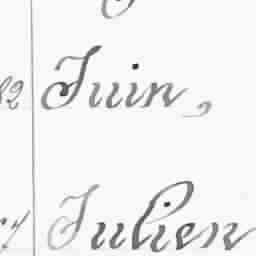 82 Juin,
Julien